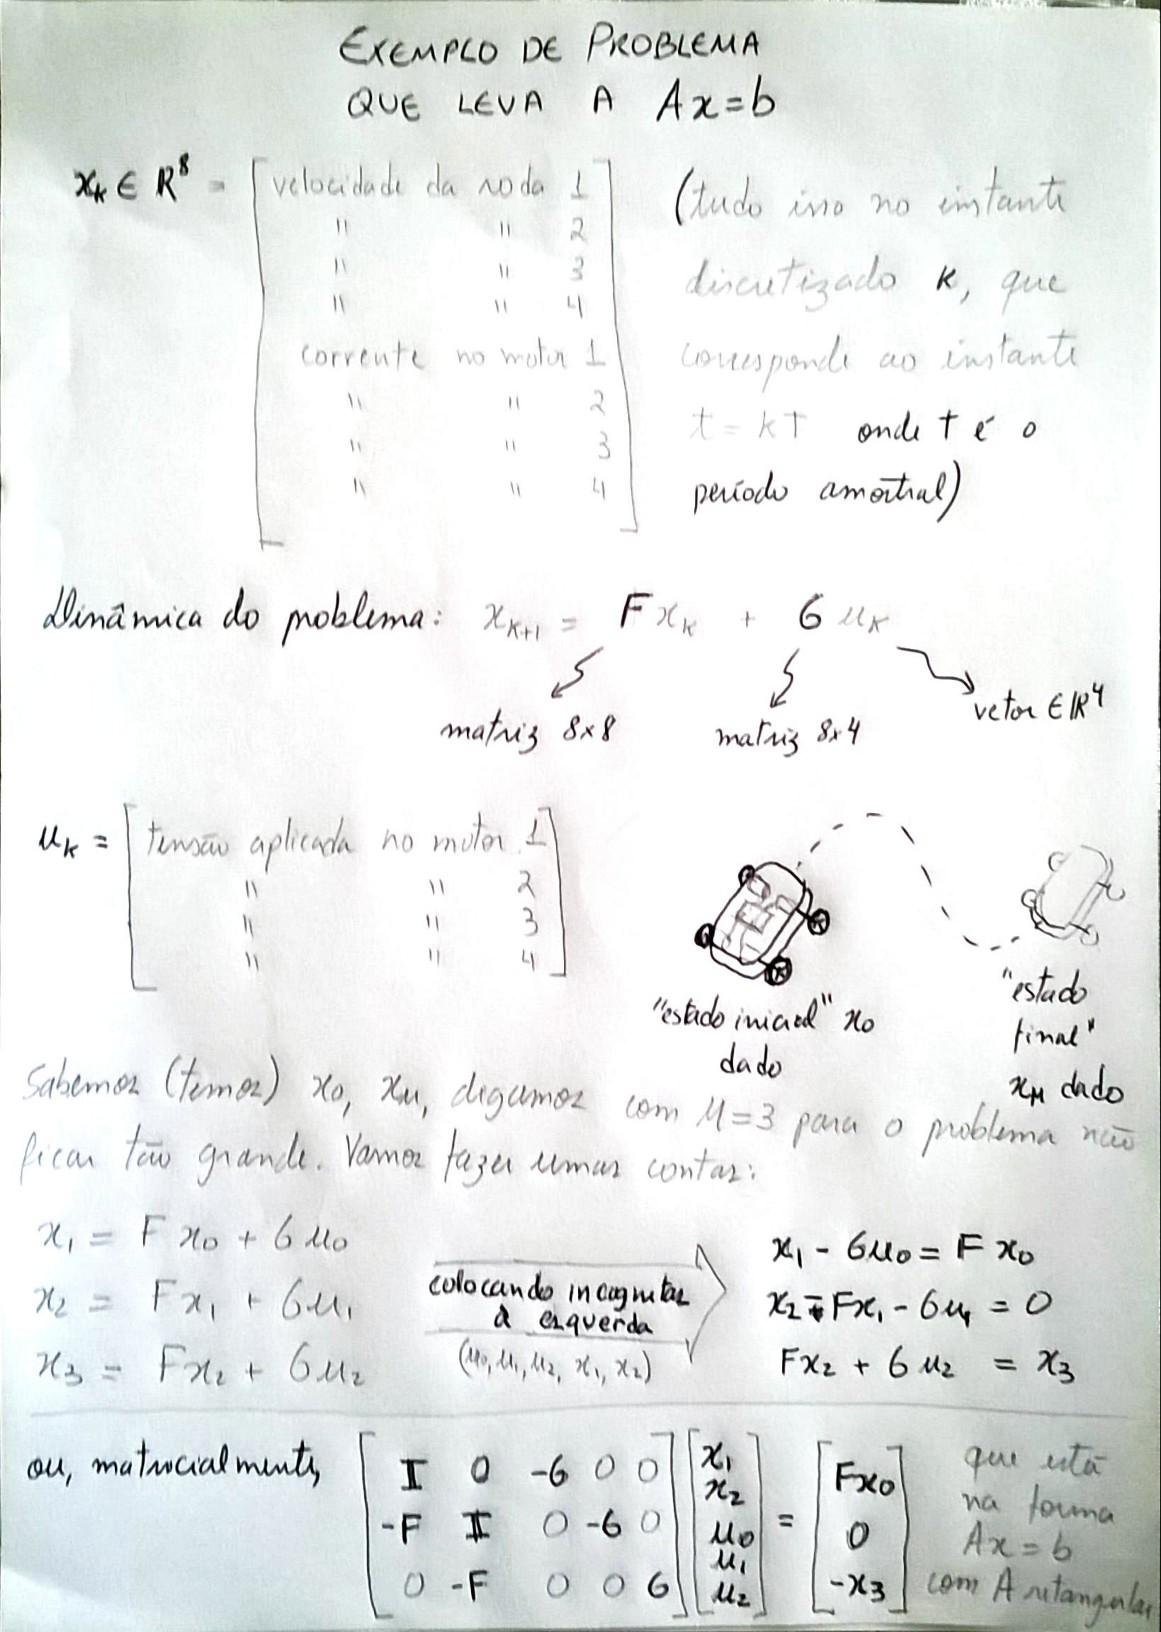 EXEMPLO DE PROBLEMA
QUE LEVA A Ax=b
x_k ∈ R⁸ = [velocidade da roda 1
" " 2
" " 3
" " 4
corrente no motor 1
" " 2
" " 3
" " 4]
(tudo isso no instante
discretizado k, que
corresponde ao instante
t = kT onde T é o
período amostral)
Dinâmica do problema: x_{k+1} = F x_k + G u_k
matriz 8x8
matriz 8x4
vetor ∈ R⁴
u_k = [tensão aplicada no motor 1
" " 2
" " 3
" " 4]
"estado inicial" x_0
dado
"estado
final"
x_M dado
Sabemos (temos) x_0, x_M, digamos com M=3 para o problema não
ficar tão grande. Vamos fazer umas contas:
x_1 = F x_0 + G u_0
x_2 = F x_1 + G u_1
x_3 = F x_2 + G u_2
colocando incognitas
à esquerda
(u_0, u_1, u_2, x_1, x_2)
x_1 - G u_0 = F x_0
x_2 - F x_1 - G u_1 = 0
F x_2 + G u_2 = x_3
ou, matricialmente,
[I 0 -G 0 0
-F I 0 -G 0
0 -F 0 0 G]
[x_1
x_2
u_0
u_1
u_2]
=
[F x_0
0
-x_3]
que está
na forma
Ax = b
com A retangular